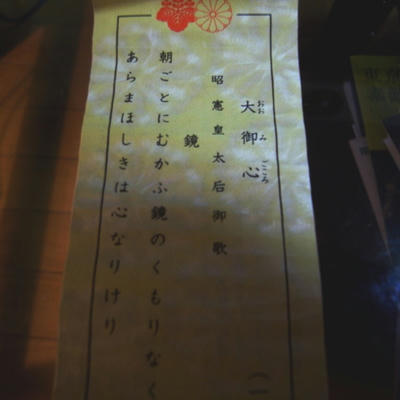 大御心
おおみごころ
昭憲皇太后御歌
鏡
朝ごとにむかふ鏡のくもりなく
あらまほしきは心なりけり
(一